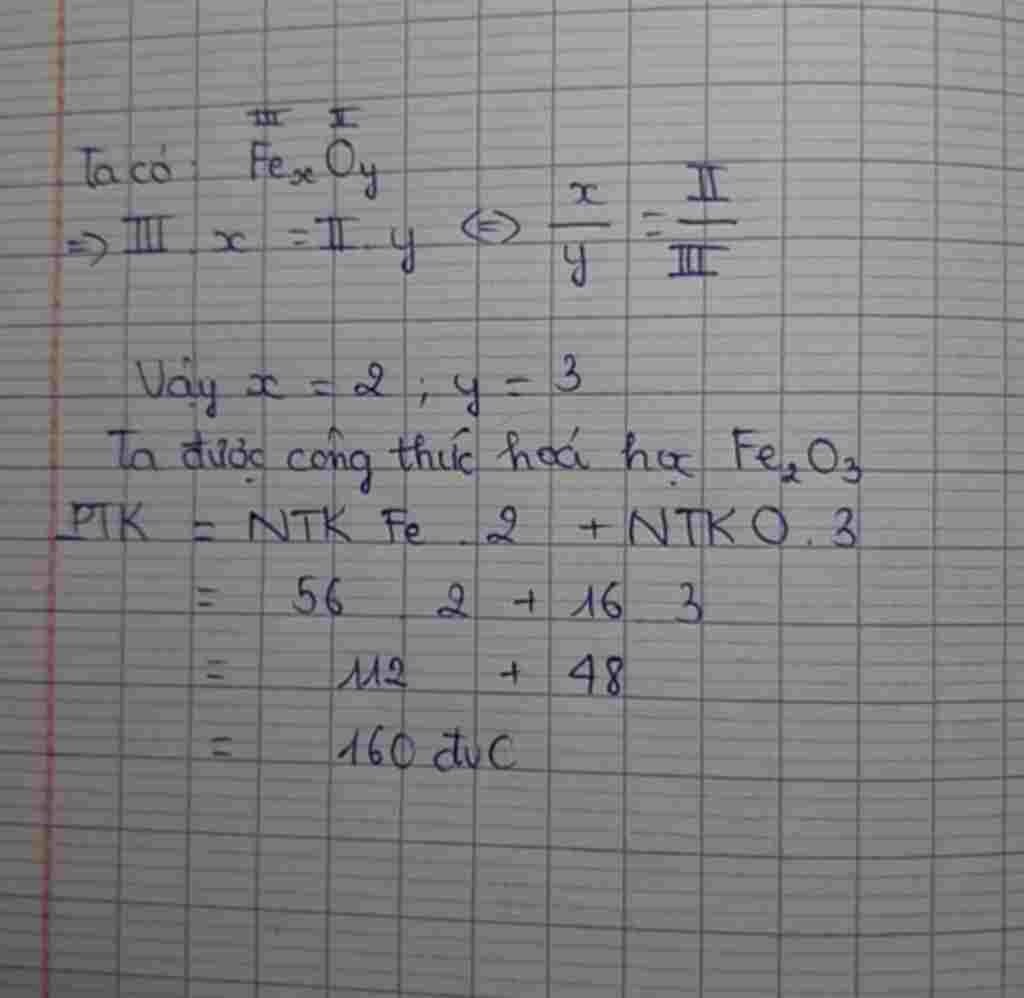 III II
Ta có: FexOy
=> III . x = II . y <=> x/y = II/III
Vậy x = 2 ; y = 3
Ta được công thức hoá học Fe2O3
PTK = NTK Fe . 2 + NTK O . 3
= 56 2 + 16 3
= 112 + 48
= 160 đvC